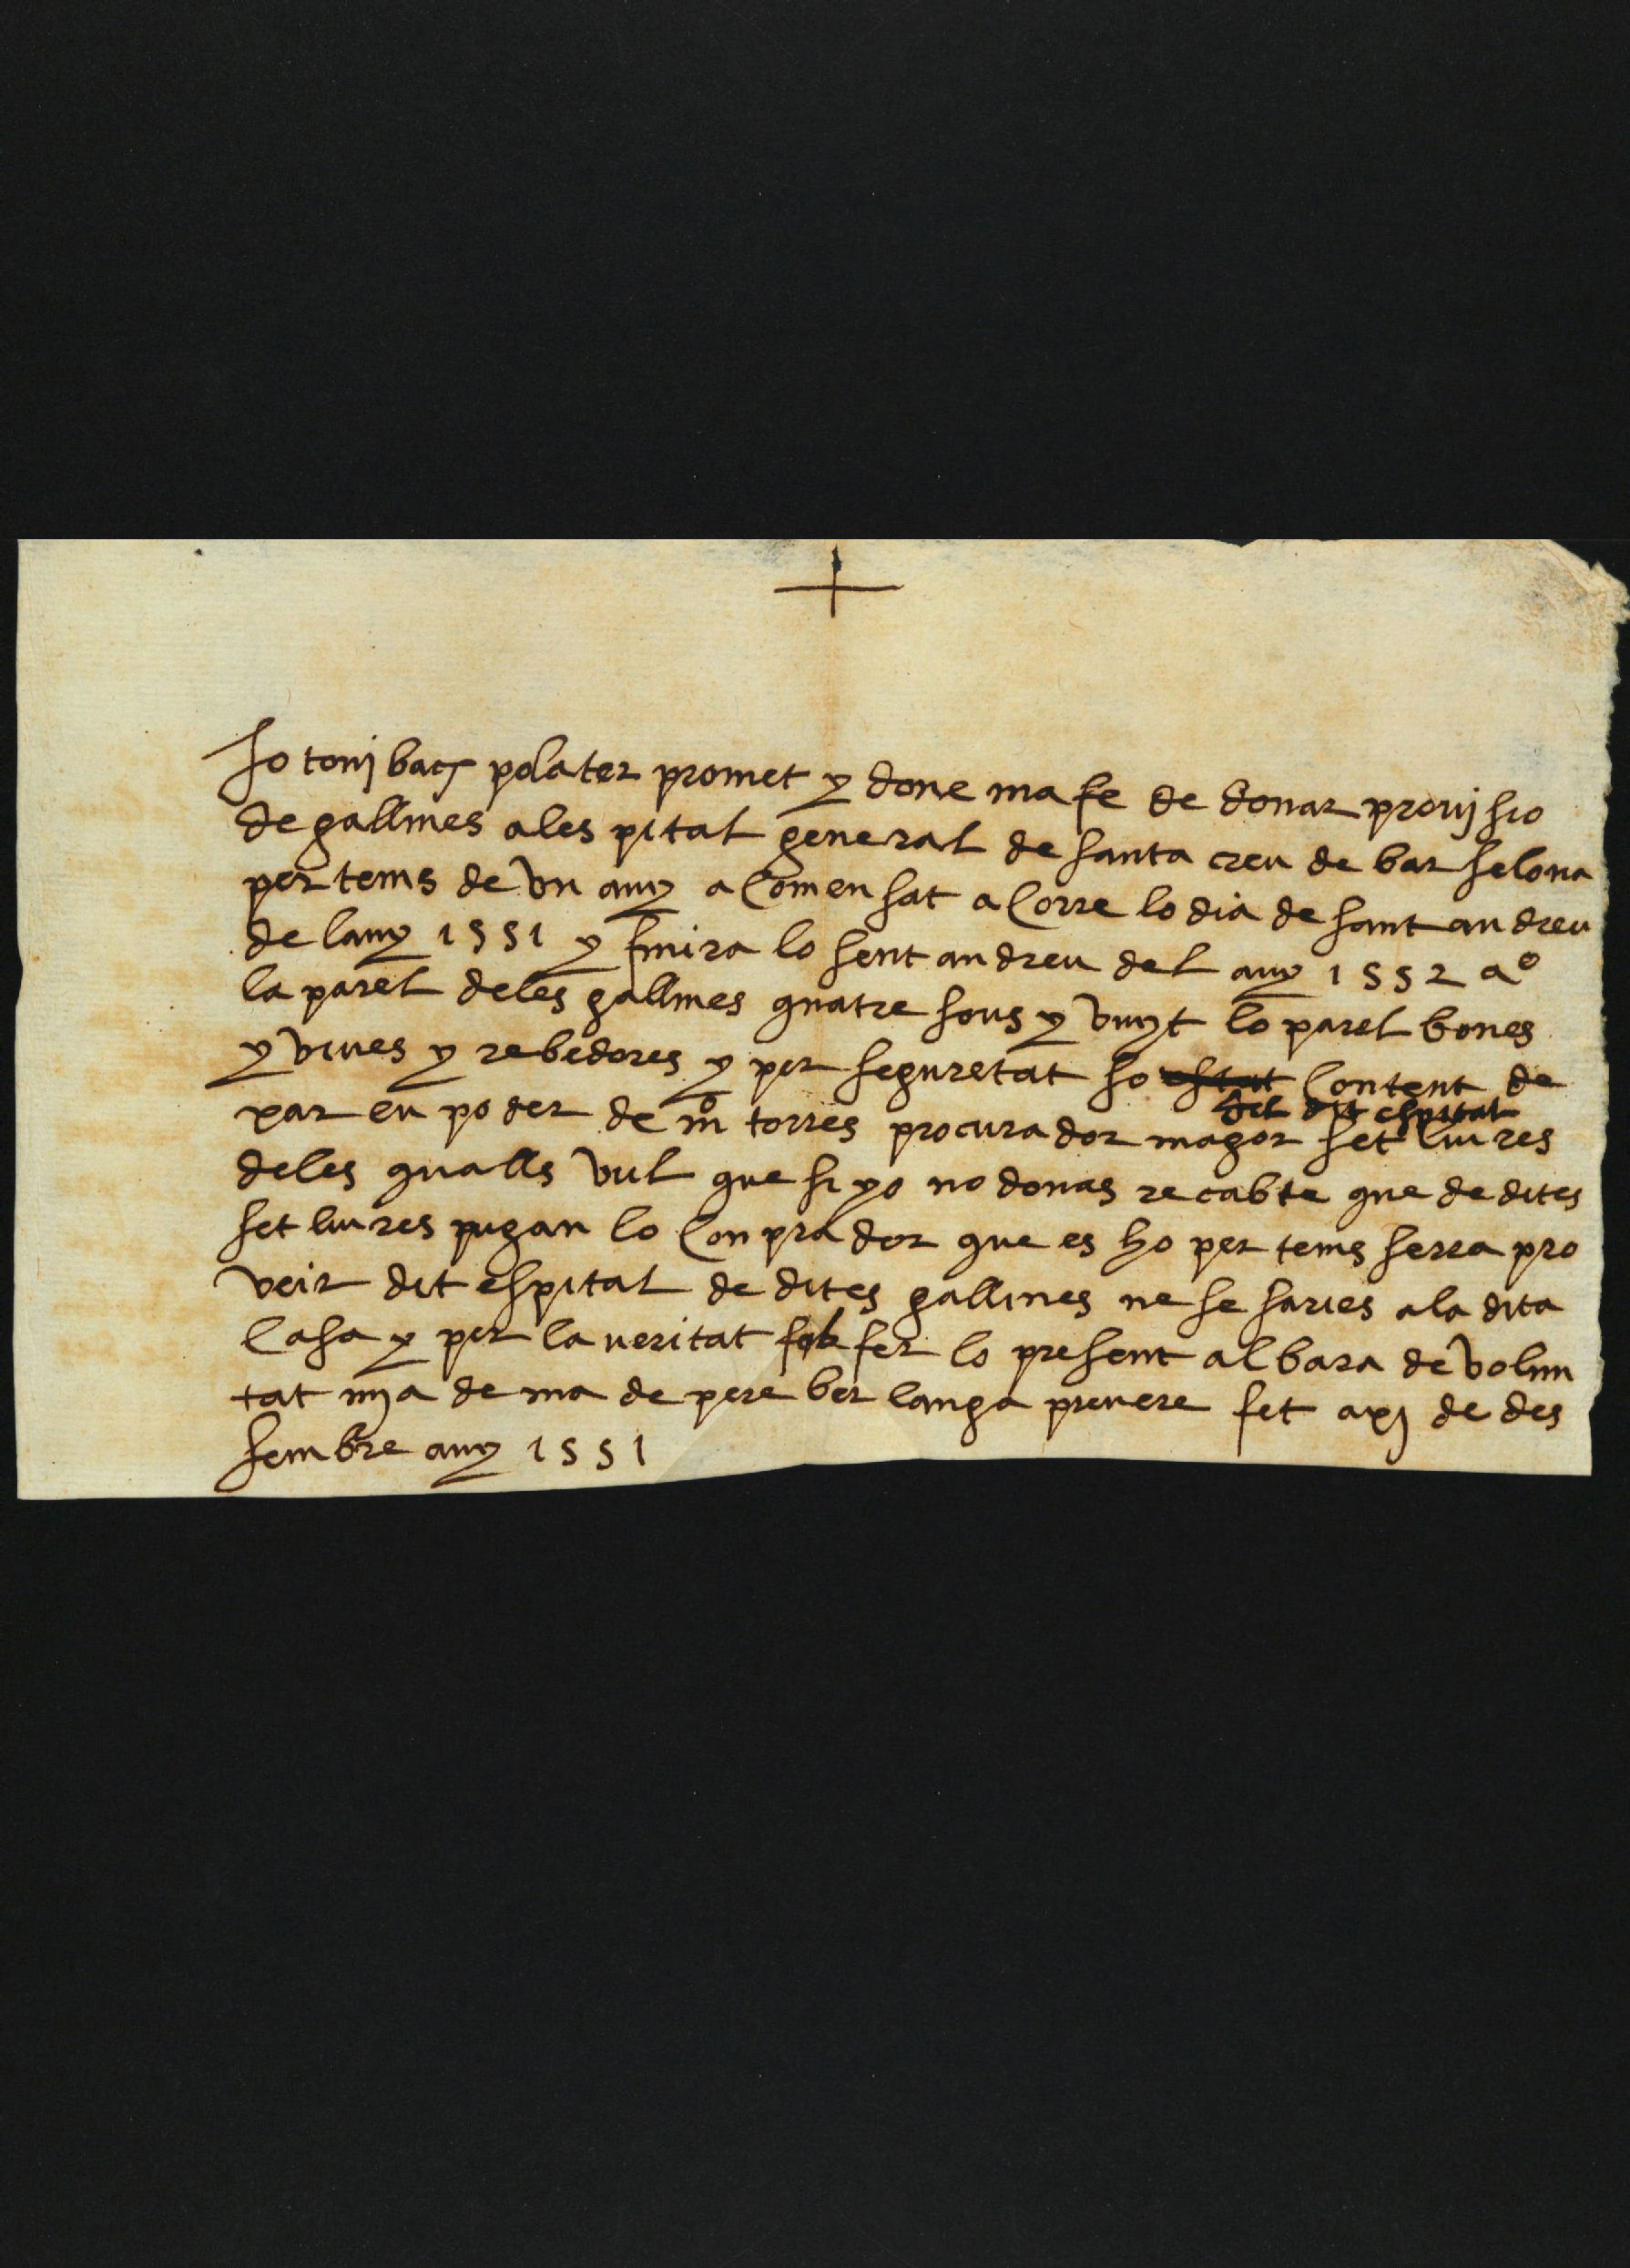 Io tonj bacs polater promet y done ma fe de donar provjsio
de gallines ales pital general de santa creu de bar selona
per tems de vn any a comensat a corre lo dia de sant andreu
de lany 1551 y finira lo sent andreu del any 1552 a°
la parel deles gallines quatre sous y vuyt lo parel bones
y viues y rebedores y per seguretat so estat content de
del dit espital
xar en poder de mº torres procurador magor set liures
deles qualls vul que si yo no donas recabte que de dites
set liures pugan lo conprador que es ho per tems serra pro
veir dit espital de dites gallines ne se saries ala dita
casa y per la veritat fas fer lo present albara de volun
tat mja de ma de pere berlanga prevere fet a xj de des
sembre any 1551